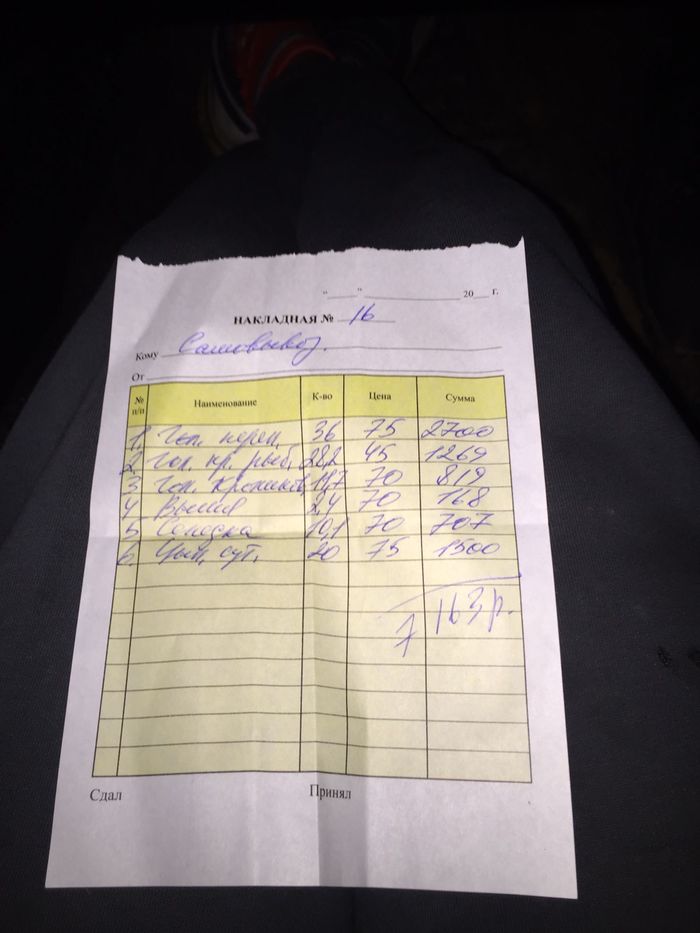 "___" ______________ 20___ г.
НАКЛАДНАЯ № 16
Кому Самовывоз.
От
№ п/п Наименование К-во Цена Сумма
1. Гол. 36 75 2700
2. Гол. кр. рыб. 28,2 45 1269
3 Гол. кроликов 11,7 70 819
4 Вымя 2,4 70 168
5 Селедка 10,1 70 707
6. Цып. сут. 20 75 1500
7 163 р.
Сдал Принял